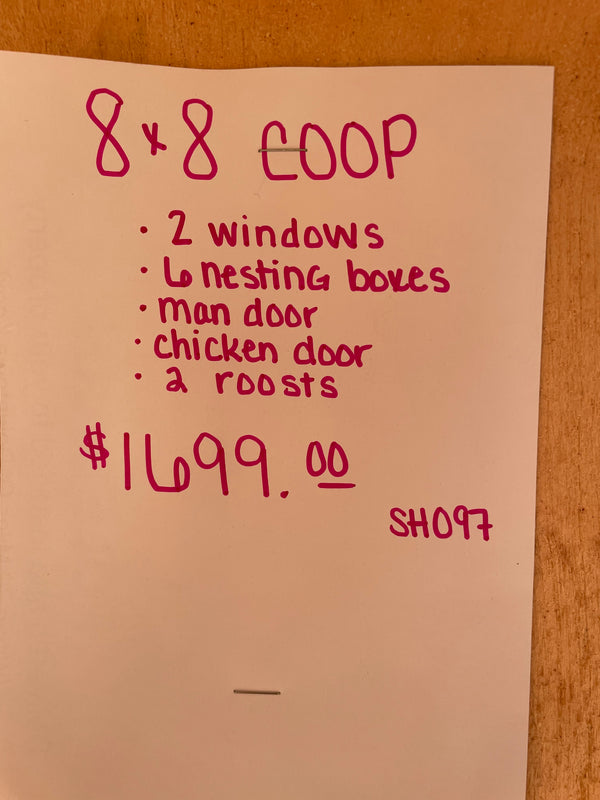 8x8 COOP
· 2 windows
· 6 nesting boxes
· man door
· chicken door
· 2 roosts
$1699.00
SH097